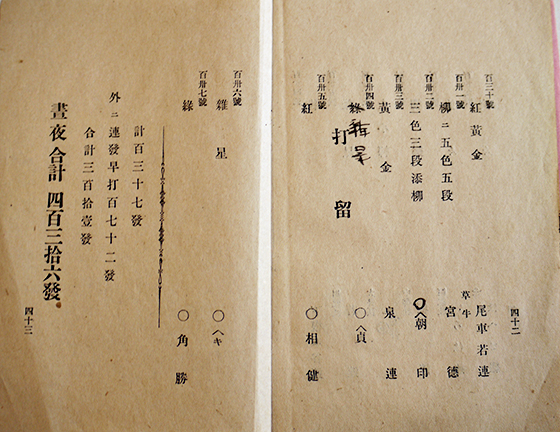 百三十號
紅黃金
尾車若連
百卅一號
柳ニ五色五段
草牛
宮德
百卅二號
三色三段添柳
〇ヘ朝印
百卅三號
黃金
泉連
百卅四號
打留
〇ヘ貞
百卅五號
紅
〇相健
四十二
百卅六號
雜星
〇ヘキ
百卅七號
綠
〇角勝
計百三十七發
外ニ連發早打百七十二發
合計三百拾壹發
晝夜合計四百三拾六發
四十三